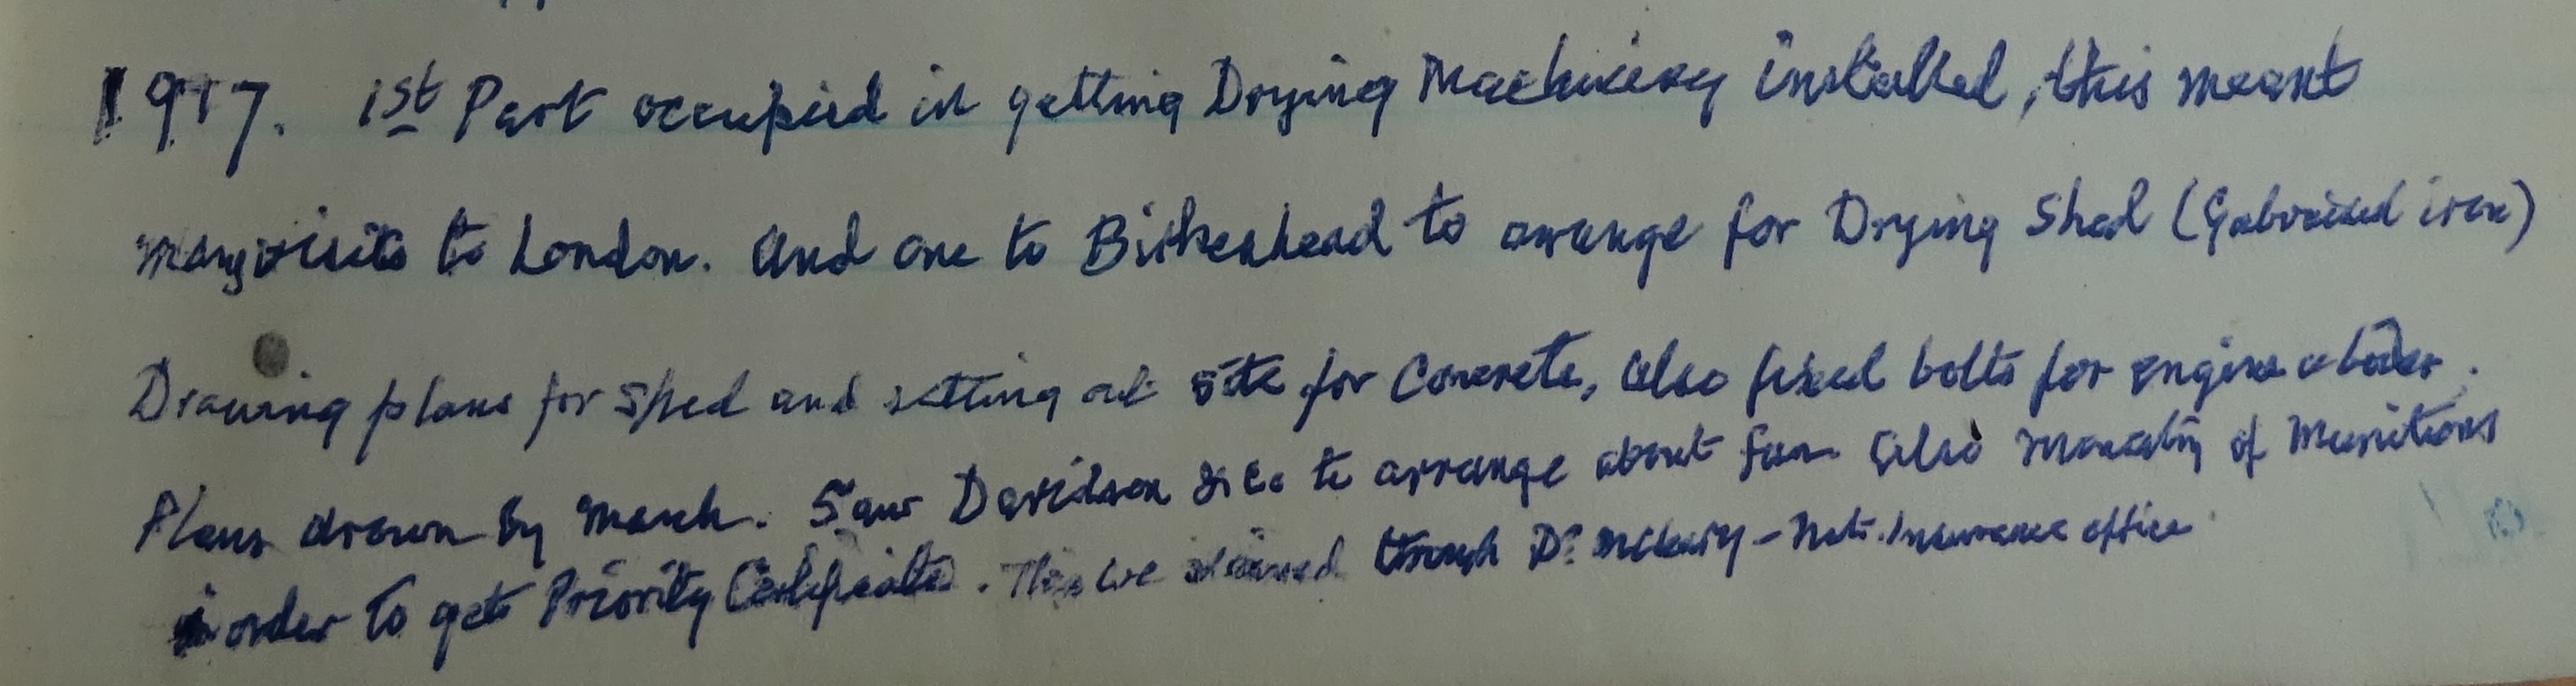 1917. 1st Part occupied in getting Drying Machinery installed, this meant
many visits to London. And one to Birkenhead to arrange for Drying Shed (Galvanised iron)
Drawing plans for Shed and setting out site for Concrete, Also fixed bolts for engine
Plans drawn by March. Saw Davidson & Co to arrange about Fan Also of Munitions
in order to get Priority Certificate. This we obtained through Dr - Nat. Insurance office